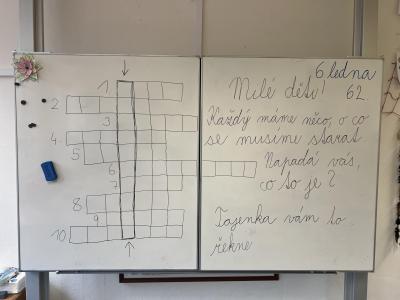 1
2
3
4
5
6
7
8
9
10
6. ledna
62.
Milé děti!
Každý máme něco, o co
se musíme starat.
Napadá vás,
co to je?
Tajenka vám to
řekne